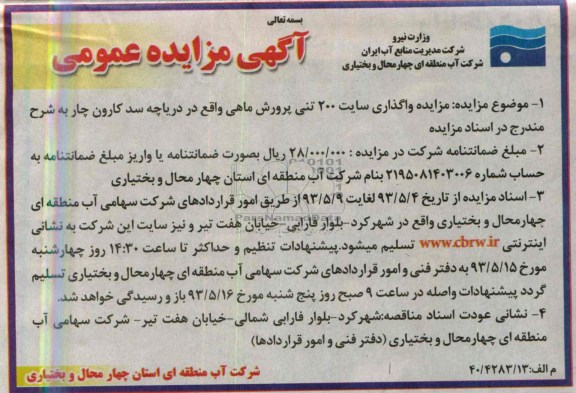 بسمه تعالی
وزارت نیرو
شرکت مدیریت منابع آب ایران
شرکت آب منطقه ای چهارمحال و بختیاری
آگهی مزایده عمومی
۱- موضوع مزایده: مزایده واگذاری سایت ۲۰۰ تنی پرورش ماهی واقع در دریاچه سد کارون چار به شرح
مندرج در اسناد مزایده
۲- مبلغ ضمانتنامه شرکت در مزایده : ۲۸/۰۰۰/۰۰۰ ریال بصورت ضمانتنامه یا واریز مبلغ ضمانتنامه به
حساب شماره ۲۱۹۵۰۸۱۴۰۳۰۰۶ بنام شرکت آب منطقه ای استان چهار محال و بختیاری
۳- اسناد مزایده از تاریخ ۹۳/۵/۴ لغایت ۹۳/۵/۹ از طریق امور قراردادهای شرکت سهامی آب منطقه ای
چهارمحال و بختیاری واقع در شهرکرد-بلوار فارابی -خیابان هفت تیر و نیز سایت این شرکت به نشانی
اینترنتی www.cbrw.ir تسلیم میشود.پیشنهادات تنظیم و حداکثر تا ساعت ۱۴:۳۰ روز چهارشنبه
مورخ ۹۳/۵/۱۵ به دفتر فنی و امور قراردادهای شرکت سهامی آب منطقه ای چهارمحال و بختیاری تسلیم
گردد پیشنهادات واصله در ساعت ۹ صبح روز پنج شنبه مورخ ۹۳/۵/۱۶ باز و رسیدگی خواهد شد.
۴- نشانی عودت اسناد مناقصه:شهرکرد-بلوار فارابی شمالی-خیابان هفت تیر- شرکت سهامی آب
منطقه ای چهارمحال و بختیاری (دفتر فنی و امور قراردادها)
م الف:۴۰/۴۲۸۳/۱۳
شرکت آب منطقه ای استان چهار محال و بختیاری